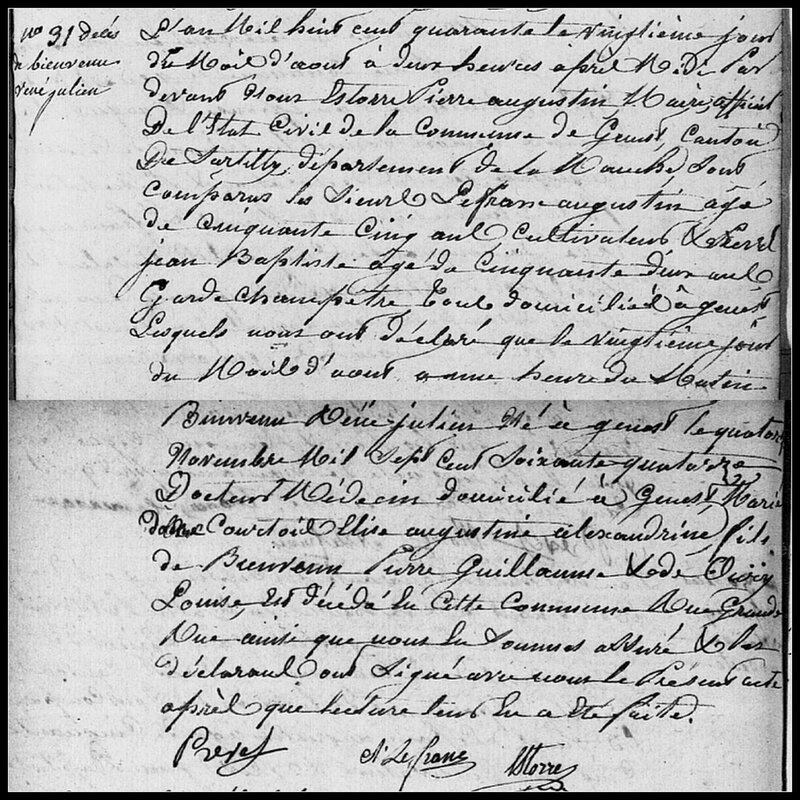 no 31 décès
de bienvenu
rené julien
L'an Mil huit cent quarante le vingtième jour
du Mois d'aout à deux heures après Midi Par
devant Nous Estorre Pierre augustin Maire, officier
De l'Etat Civil de la Commune de Genest, canton
De Sartilly, département de la Manche, Sont
comparus les Sieurs Lefranc augustin âgé
de cinquante cinq ans, cultivateur & Prevel
jean Baptiste âgé de cinquante deux ans
Garde champêtre, tous domiciliés à genest
Lesquels nous ont déclaré que le vingtième jour
du Mois d'aout a une heure du Matin
Bienvenu René julien né à genest le quatorze
Novembre Mil Sept cent Soixante quatorze
Docteur Médecin domicilié à Genest, Marié
à Courtois Elise augustine alexandrine, fils
de Bienvenu Pierre Guillaume & de
Louise, Est décédé En cette Commune Rue Grande
Rue ainsi que nous En Sommes assuré & les
déclarants ont Signé avec nous le Présent acte
après que lecture leur En a Eté faite.
Prevel A. Lefranc Estorre